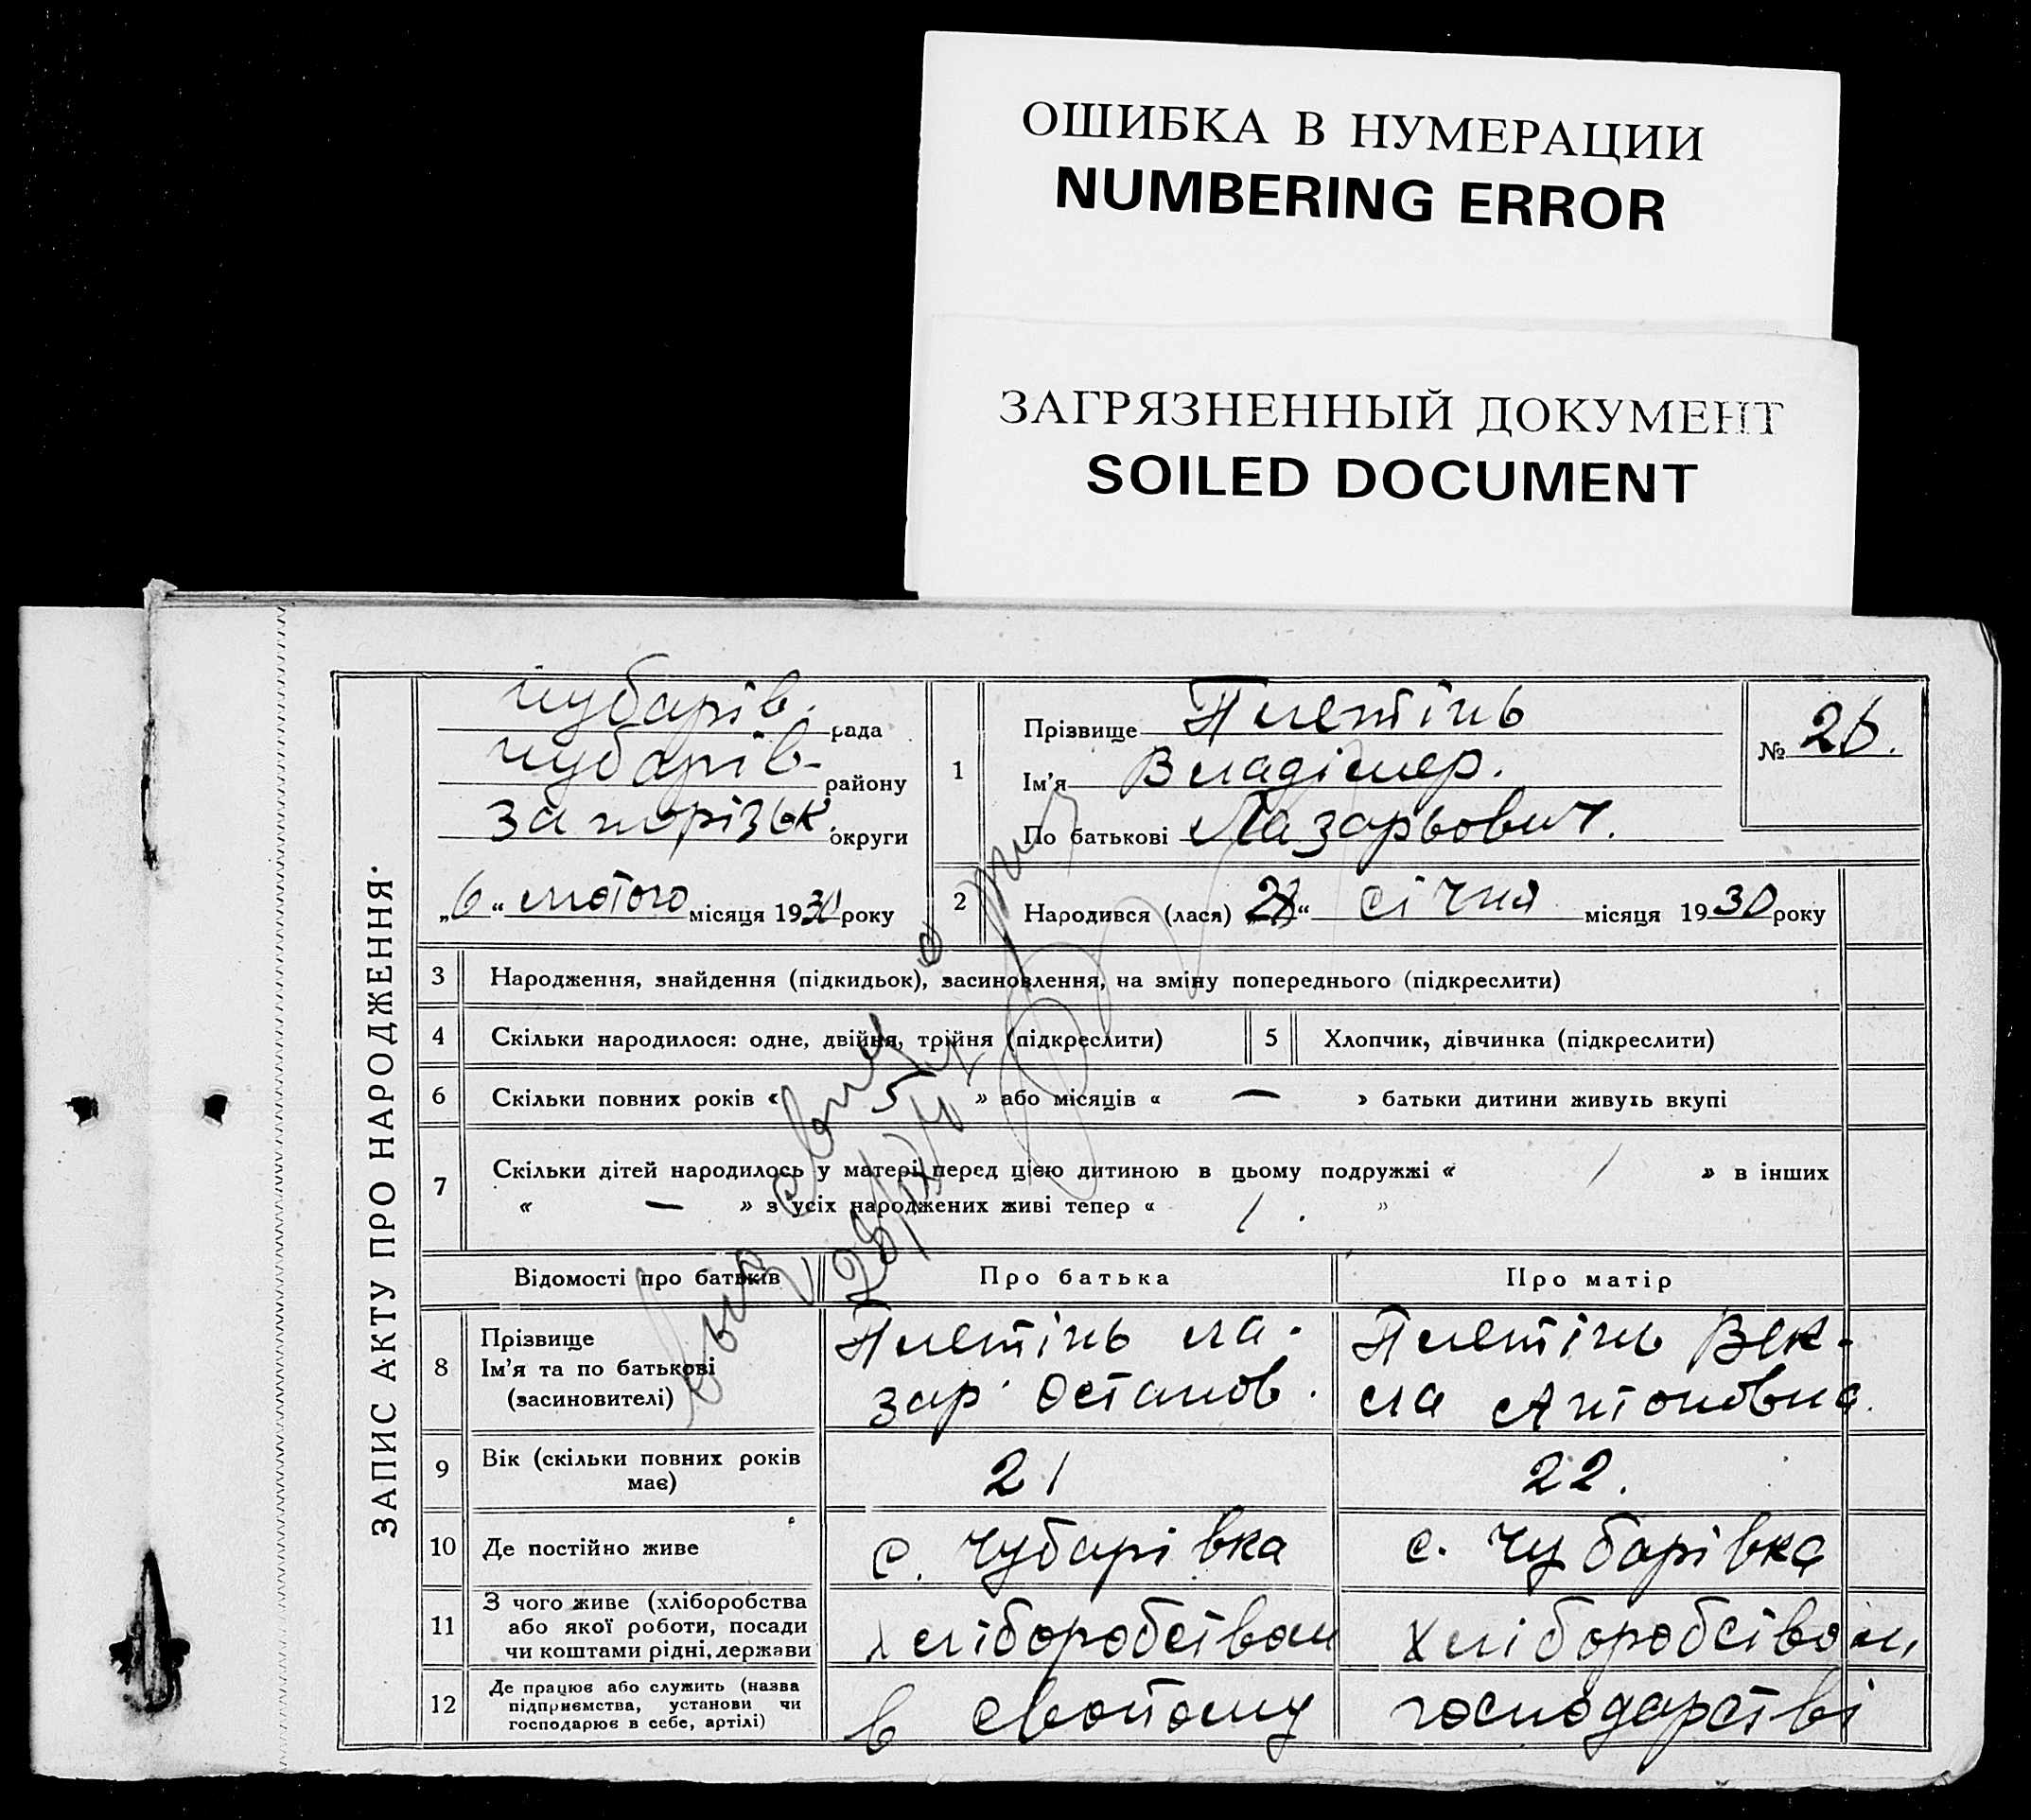 ОШИБКА В НУМЕРАЦИИ
NUMBERING ERROR
ЗАГРЯЗНЕННЫЙ ДОКУМЕНТ
SOILED DOCUMENT
ЗАПИС АКТУ ПРО НАРОДЖЕННЯ.
Чубарів. рада
Чубарів- району
Запорізьк. округи
„6“ лютого місяця 1930 року
1
Прізвище Плетінь
Ім'я Владімер.
По батькові Лазарьович.
№ 26.
2 Народився (лася) січня місяця 1930 року
3 Народження, знайдення (підкидьок), засиновлення, на зміну попереднього (підкреслити)
4 Скільки народилося: одне, двійня, трійня (підкреслити)
5 Хлопчик, дівчинка (підкреслити)
6 Скільки повних років « 5 » або місяців « — » батьки дитини живуть вкупі
7 Скільки дітей народилось у матері перед цією дитиною в цьому подружжі « 1 » в інших
« — » з усіх народжених живі тепер « 1. »
Відомості про батьків
Про батька
Про матір
8 Прізвище
Ім'я та по батькові
(засиновителі)
Плетінь Ла-
зар Остапов.
Плетінь Век-
ла Антоновна.
9 Вік (скільки повних років
має)
21
22.
10 Де постійно живе
с. Чубарівка
с. Чубарівка
11 З чого живе (хліборобства
або якої роботи, посади
чи коштами рідні, держави
хліборобством
хліборобством,
12 Де працює або служить (назва
підприємства, установи чи
господарює в себе, артілі)
в свойому
господарстві